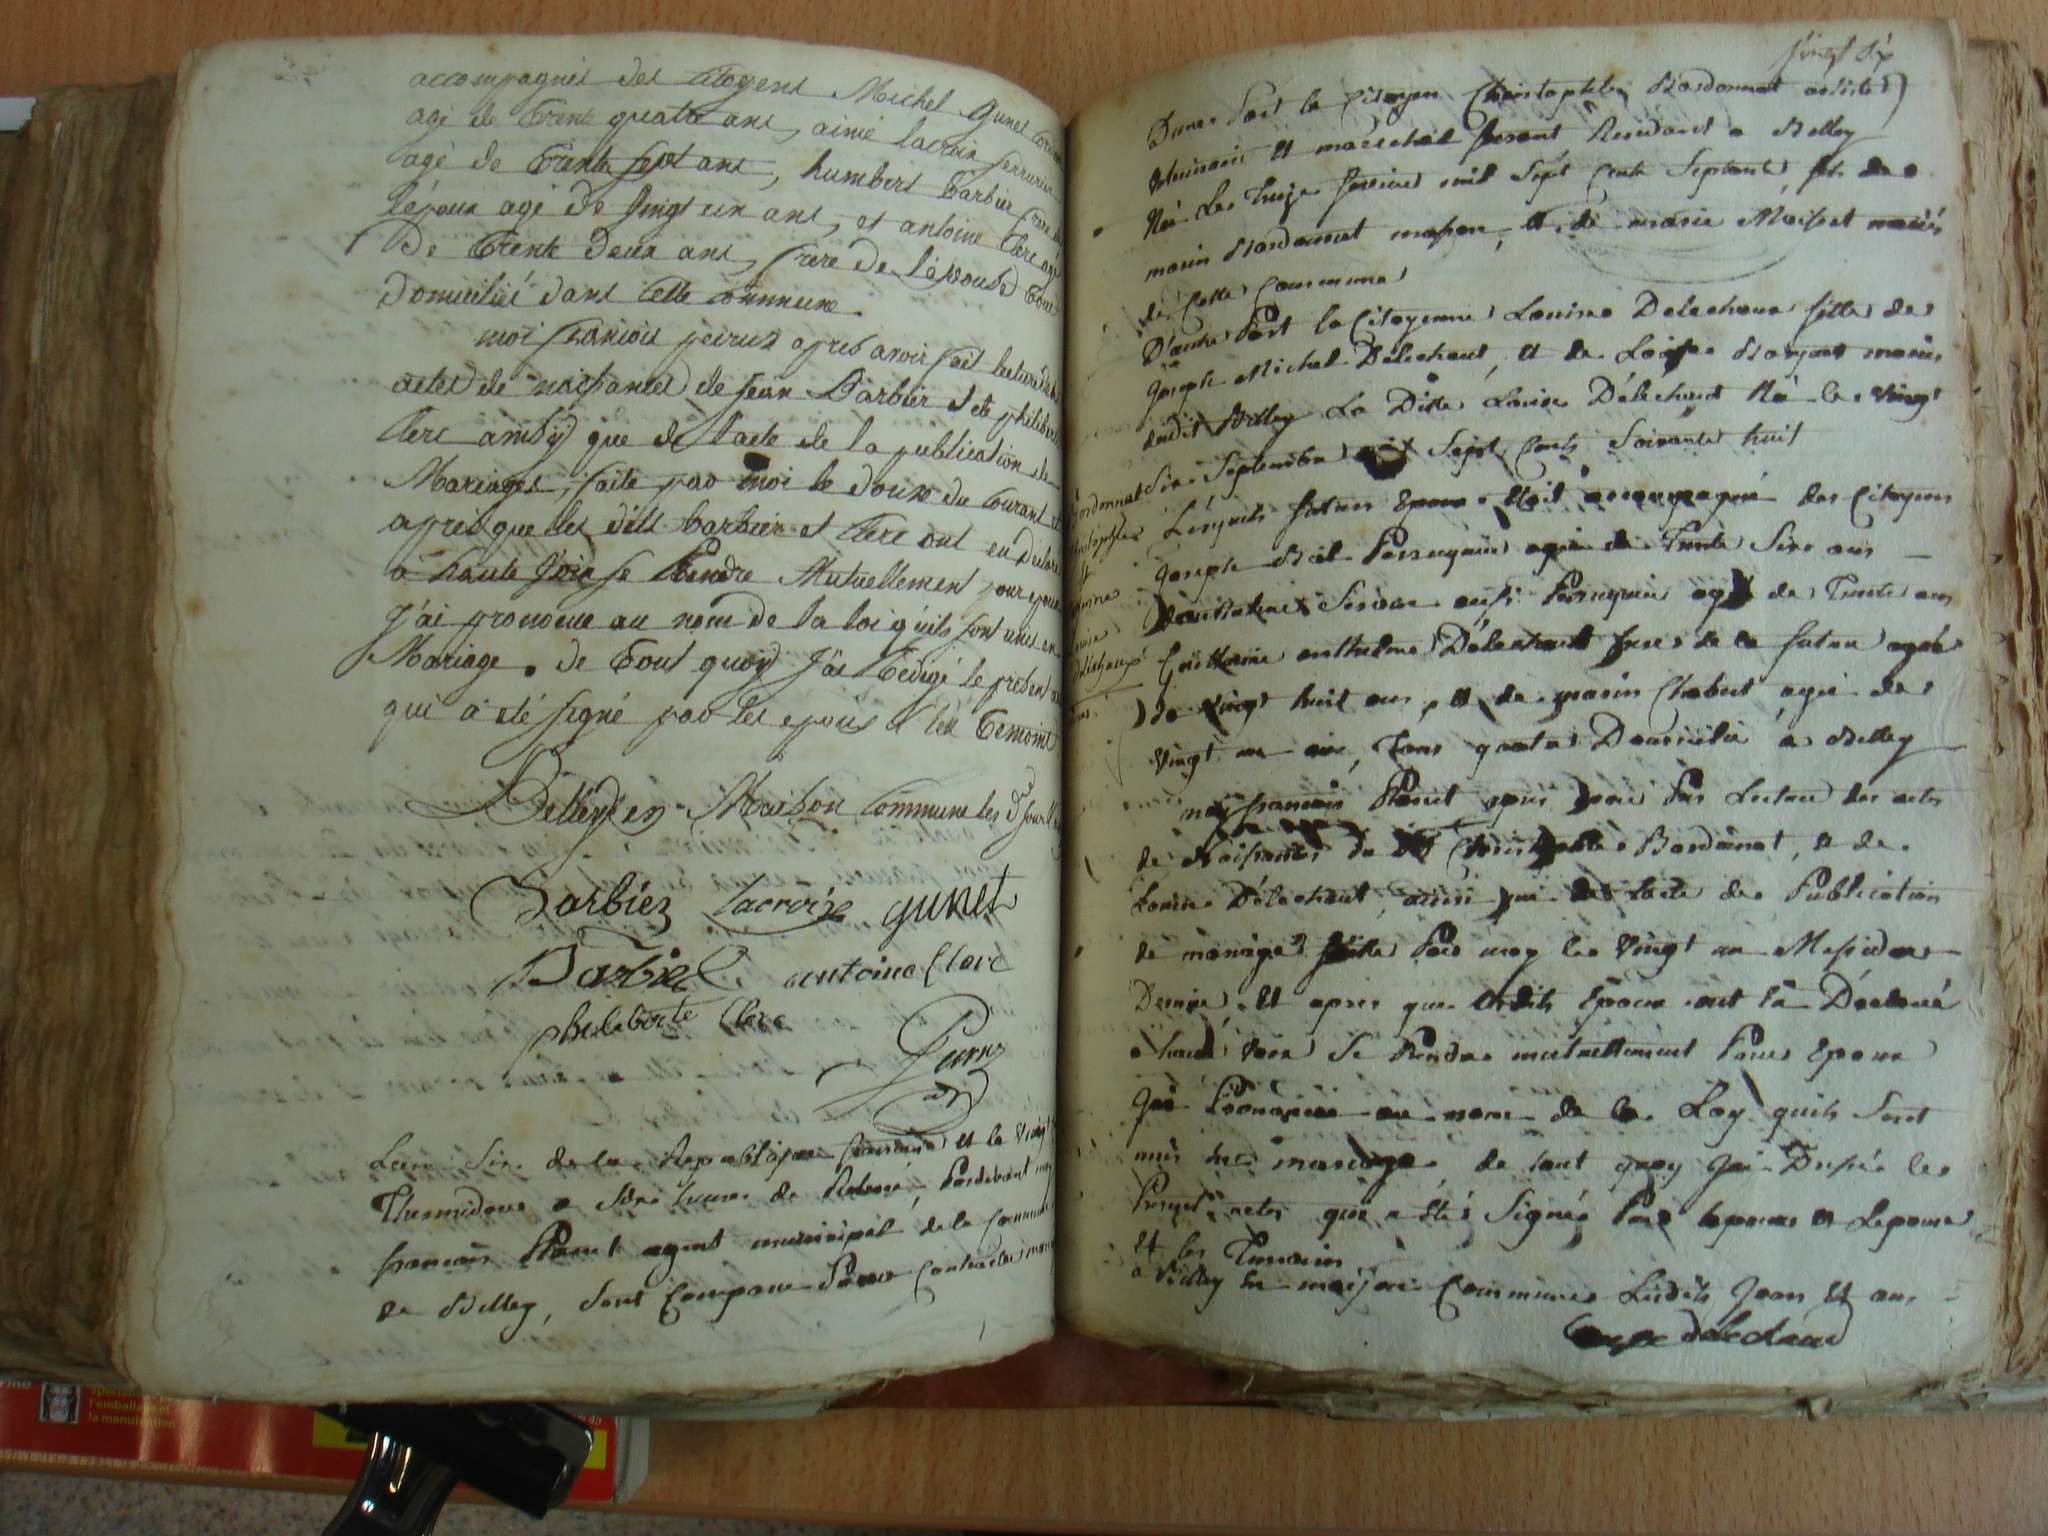 accompagnés des Citoyens Michel Gunet
agé de trente quatre ans, aimé lacroix serrurier
agé de trente sept ans, humbert barbier frere de
l'époux agé de vingt un ans, et antoine Clerc agé
De trente deux ans, frere de l'épouse tous
domiciliés dans cette commune.
moi françois après avoir fait lecture des
actes de naissances de jean Barbier et de philiberte
Clerc ainsy que de l'acte de la publication de
Mariages, faite par moi le douze du courant et
après que les dits barbier et Clerc ont eu déclaré
à haute voix se prendre Mutuellement pour epoux
J'ai prononcé au nom de la loi qu'ils sont unis en
Mariage. de tout quoy J'ai rédigé le présent
qui a été signé par les epoux et les temoins
Belley en Maison Commune les d jour
Barbier lacroix gunet
Barbier antoine Clerc
philiberte Clerc
L'an Six de la Republique francaise et le vingt
Thermidor a heures de Relevé, Pardevant moy
francois agent municipal de la Commune
de Belley, Sont Comparu Pour Contracter
vingt six
Dune Part le Citoyen Christophle Bardonnet artiste
veterinaire et maréchal ferrant Residant a Belley
Né Le Treize Janvier mil Sept Cents Septante, fils de
marin Bardonnet masson, et de marie Moisset mariés
de Cette Commune
D'autre Part la Citoyenne Louise Delechaux fille de
Joseph Michel Delechaut, et de mariés
dudit Belley La Dite Louise Délechaut Né le vingt
Six Septembre mil Sept Cents Soixante huit
Bardonnet
Christophle
et
Delechaux
Lesquels futurs Epoux Etoit accompagné des Citoyens
Joseph Perruquier agé de Trente Six ans
aussi Perruquier agé de Trente ans
Guillaume anthelme Délechaut frere de la future agée
de vingt huit ans, et de marin Chabert agé de
vingt un ans, Tous quatre Domicilié à Belley
moy francois apres avoir Fais Lecture des actes
de Naissances de Christophle Bardonnet, et de
Louise Délechaut, ainsi que de lacte de Publication
de mariage faite Par moy le vingt un Messidor
Dernier, Et apres que lesdits Epoux ont Eû Déclaré
a haute voix Se Prendre mutuellement Pour Epoux
Jai Prononcé au nom de la Loy quils Sont
unis en mariage, de tout quoy Jai Dressé le
Présent acte qui a Eté Signé Par lepoux et Lepouse
Et les Temoins
a Belley En maison Commune Lesdits Jour Et an
delechaud